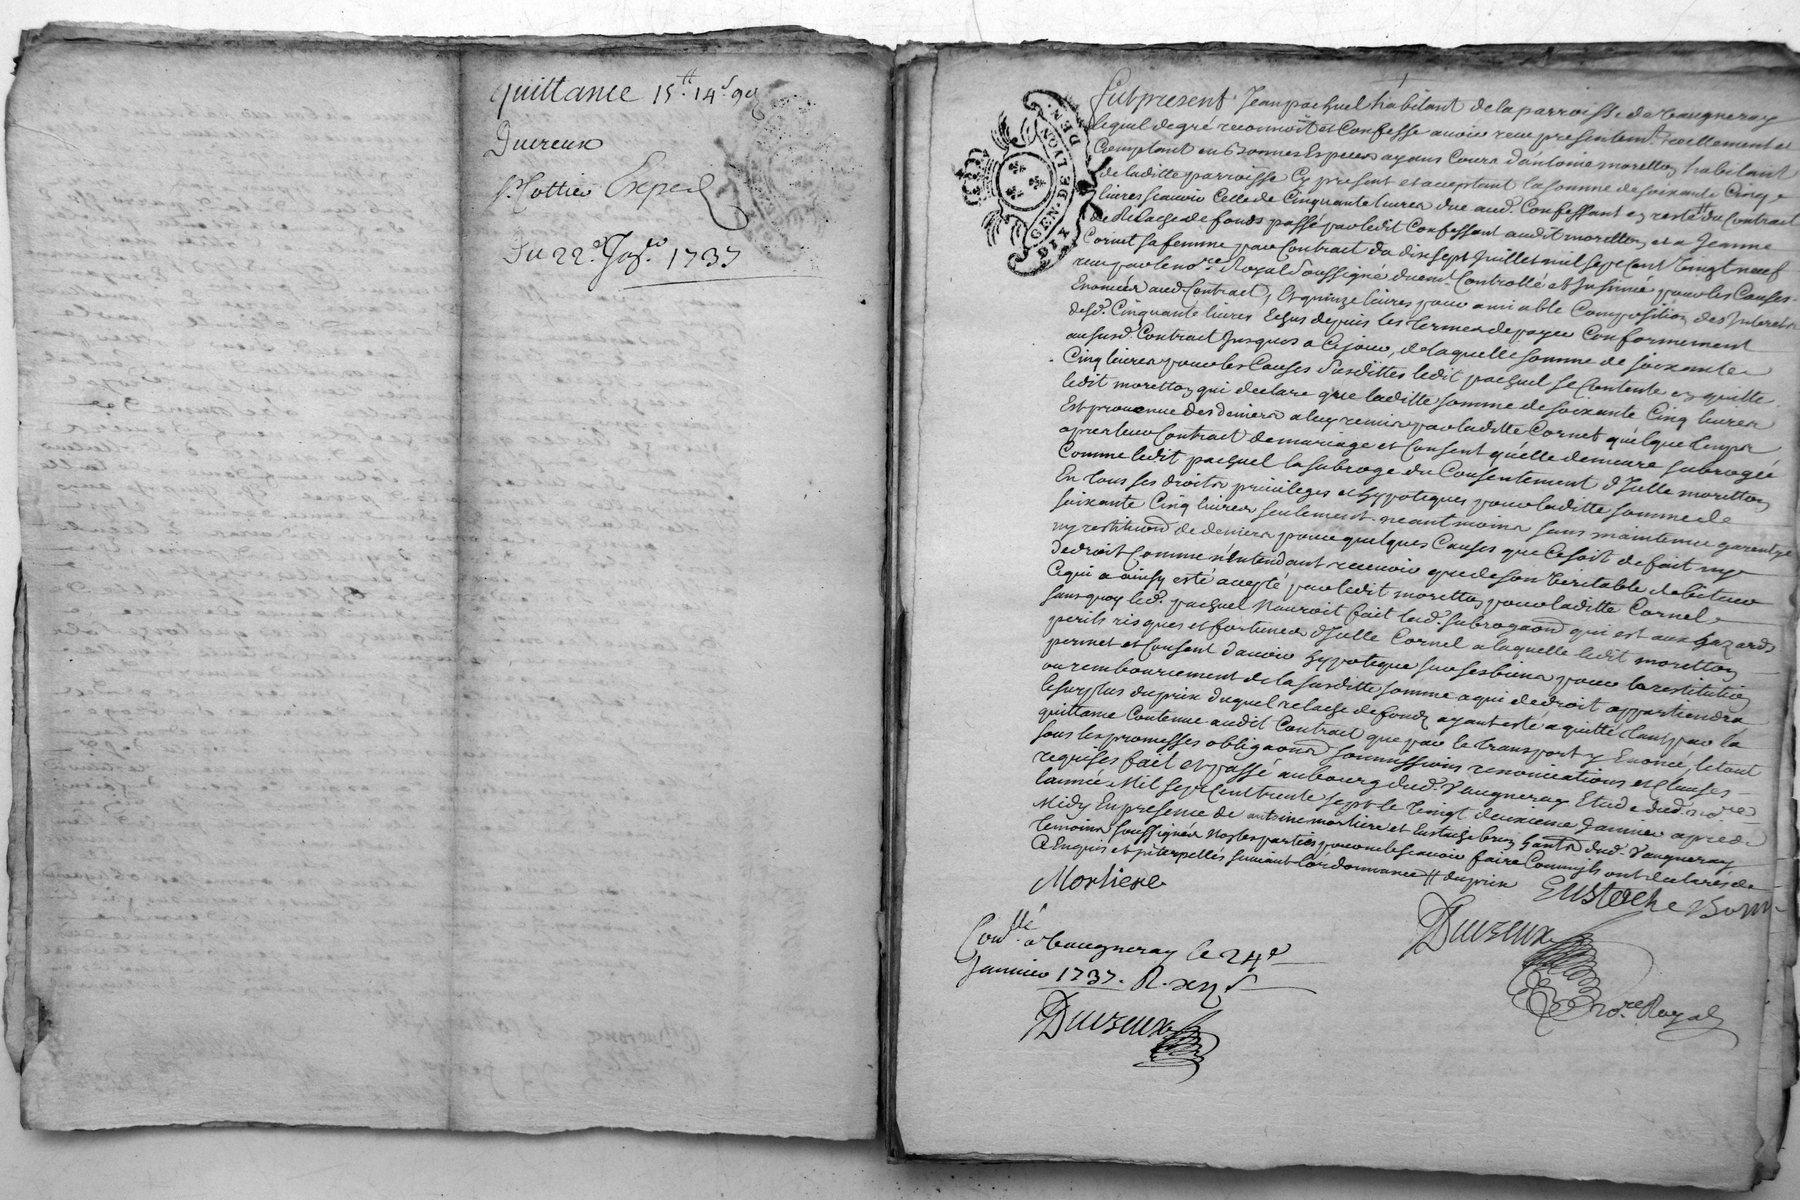 quittance 15.tt 14.s 9d
Duvreux
Exped
Du 22.e Janv.r 1737
GEN. DE LYON
DIX DEN.
fut present Jean pachuel habitant de la parroisse de vaugneray
lequel de gré reconnoit et Confesse avoir receu presentem.t reellement et
Comptant en Bonnes Especes ayans Cours d'antoine moretton habitant
de laditte parroisse Cy present et acceptant la somme de soixante Cinq
livres scavoir Celle de Cinquante livres due aud. Confessant en reste du Contract
de Relache de fonds passé par ledit Confessant audit moretton et a Jeanne
Cornet sa femme par Contract du dix sept Juillet mil sept Cent vingt neuf
receu par le no.re Royal soussigné duem.t Controllé et Insinué pour les Causes
Enoncées aud. Contract, Et quinze livres pour amiable Composition des Interets
desd. Cinquante livres Echus depuis les termes de payer Conformement
au susd. Contract Jusques a Ce jour, de laquelle somme de soixante
Cinq livres pour les Causes susdittes ledit pachuel se Contente en quitte
ledit moretton qui declare que laditte somme de soixante Cinq livres
Est provenue des deniers a luy remis par laditte Cornet quelque temps
apres leur Contract de mariage et Consent qu'elle demeure subrogée
Comme ledit pachuel la subroge du Consentement dudit moretton
En tous ses droits privileges et hypoteques pour laditte somme de
soixante Cinq livres seulement neantmoins sans maintenue garentye
ny restitution de deniers pour quelques Causes que Ce soit de fait ny
de droit Comme n'entendant recevoir que de son veritable debiteur
Ce qui a ainsy esté accepté par ledit moretton pour laditte Cornet
sans quoy led. pachuel n'auroit fait lad. subrogaon qui est aux hazards
perils risques et fortunes d'Icelle Cornet a laquelle ledit moretton
permet et Consent d'avoir hypoteque sur ses biens pour la restitution
ou remboursement de la susditte somme a qui de droit appartiendra
le surplus du prix duquel relache de fonds ayant esté aquitté tant par la
quittance Contenue audit Contract que par le transport y Enoncé, le tout
sous les promesses obligaons soumissions renonciations et Clauses
requises fait et passé au bourg dud. Vaugneray Etude dud. no.re
l'année Mil sept Cent trente sept le vingt deuxieme Janvier apres
Midy En presence de antoine mortiere et Eustache brun hants dud. Vaugneray
temoins soussignes Non les parties pour ne le scavoir faire Comm'ils ont declarés de
Ce Enquis et Interpellés suivant l'ordonnance # du prix
Mortiere
Eustache
Duvreux
no.re Royal
Con.llé a Vaugneray le 24.e
Janvier 1737. R. xij s
Duvreux